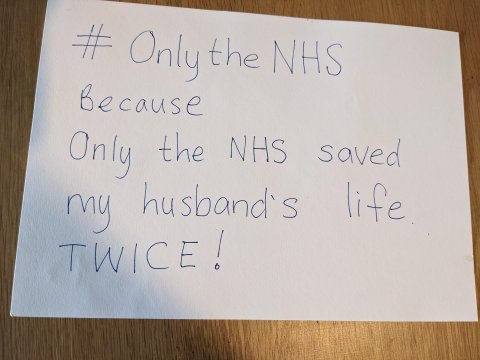 # Only the NHS
Because
Only the NHS saved
my husband's life.
TWICE!